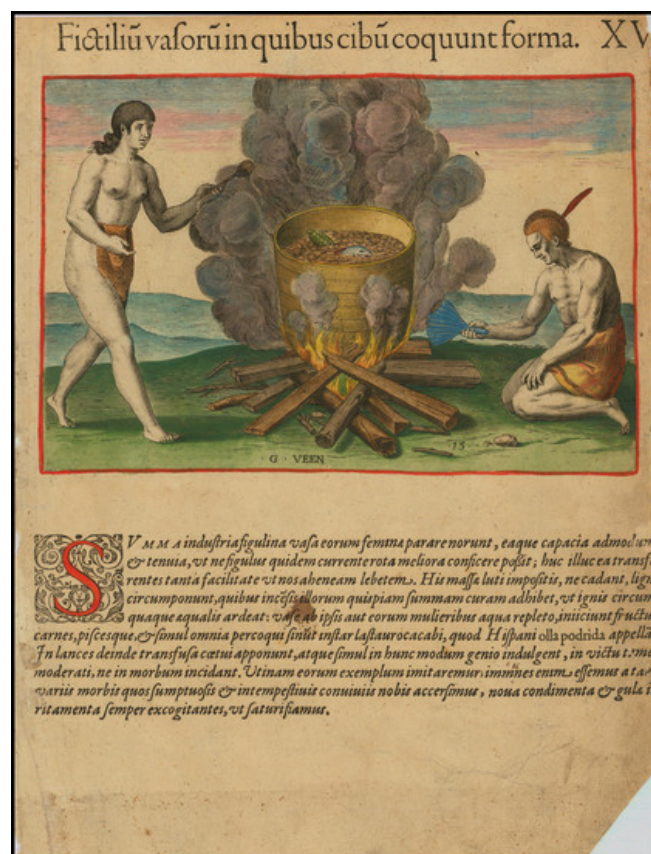 Fictiliũ vasorũ in quibus cibũ coquunt forma. XV
G · VEEN
15
SVMMA industria figulina vasa eorum feminæ parare norunt, eaque capacia admodum
& tenuia, vt ne figulus quidem currente rota meliora conficere possit; huc illuc ea transf
rentes tanta facilitate vt nos aheneam lebetem. His massæ luti impositis, ne cadant, lign
circumponunt, quibus incēsis illorum quispiam summam curam adhibet, vt ignis circum
quaque æqualis ardeat: vase ab ipsis aut eorum mulieribus aqua repleto, iniiciunt fructu
carnes, piscesque, & simul omnia percoqui sinūt instar lastaurocacabi, quod Hispani olla podrida appella
In lances deinde transfusa cœtui apponunt, atque simul in hunc modum genio indulgent, in victu t
moderati, ne in morbum incidant. Vtinam eorum exemplum imitaremur: immunes enim essemus a ta
variis morbis quos sumptuosis & intempestiuis conuiuiis nobis accersimus, noua condimenta & gulæ i
ritamenta semper excogitantes, vt saturi fiamus.